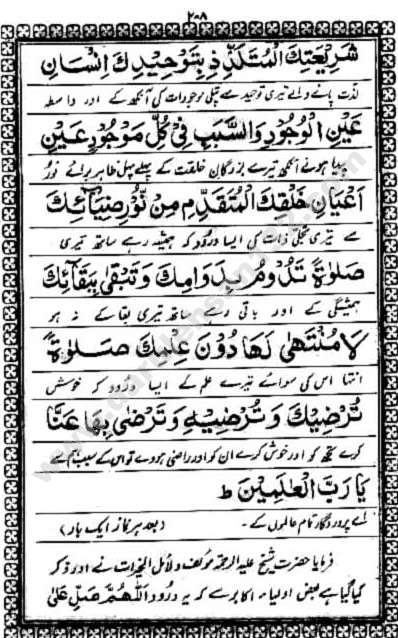 ۲۰۸
شَرِيْعَتِكَ الْمُتَلَذِّذِ بِتَوْحِيْدِكَ اِنْسَانِ
لذت پانے والے تیری توحید سے پتلی موجودات کی آنکھ کے اور واسطہ
عَيْنِ الْوُجُوْدِ وَالسَّبَبِ فِيْ كُلِّ مَوْجُوْدٍ عَيْنِ
پیدا ہونے آنکھ تیرے بزرگان خلقت کے پہلے پہل ظاہر نور
اَعْيَانِ خَلْقِكَ الْمُتَقَدِّمِ مِنْ نُّوْرِ ضِيَآئِكَ
سے تیری تجلی ذات کی ایسا درود کہ ہمیشہ رہے ساتھ تیری
صَلٰوةً تَدُوْمُ بِدَوَامِكَ وَتَبْقٰى بِبَقَآئِكَ
ہمیشگی کے اور باقی رہے ساتھ تیری بقا کے نہ ہو
لَا مُنْتَهٰى لَهَا دُوْنَ عِلْمِكَ صَلٰوةً
انتہا اس کی سوائے تیرے علم کے ایسا درود کہ خوش
تُرْضِيْكَ وَتُرْضِيْهِ وَتَرْضٰى بِهَا عَنَّا
کرے تجھ کو اور خوش کرے ان کو اور راضی ہووے تو اس کے سبب ہم سے
يَا رَبَّ الْعٰلَمِيْنَ ط
اے پروردگار تمام عالموں کے ۔ (بعد ہر نماز ایک بار)
فرمایا حضرت شیخ علیہ الرحمۃ مؤلف دلائل الخیرات نے اور ذکر
کیا گیا ہے بعض اولیاء اکابر سے کہ یہ درود اَللّٰهُمَّ صَلِّ عَلٰى